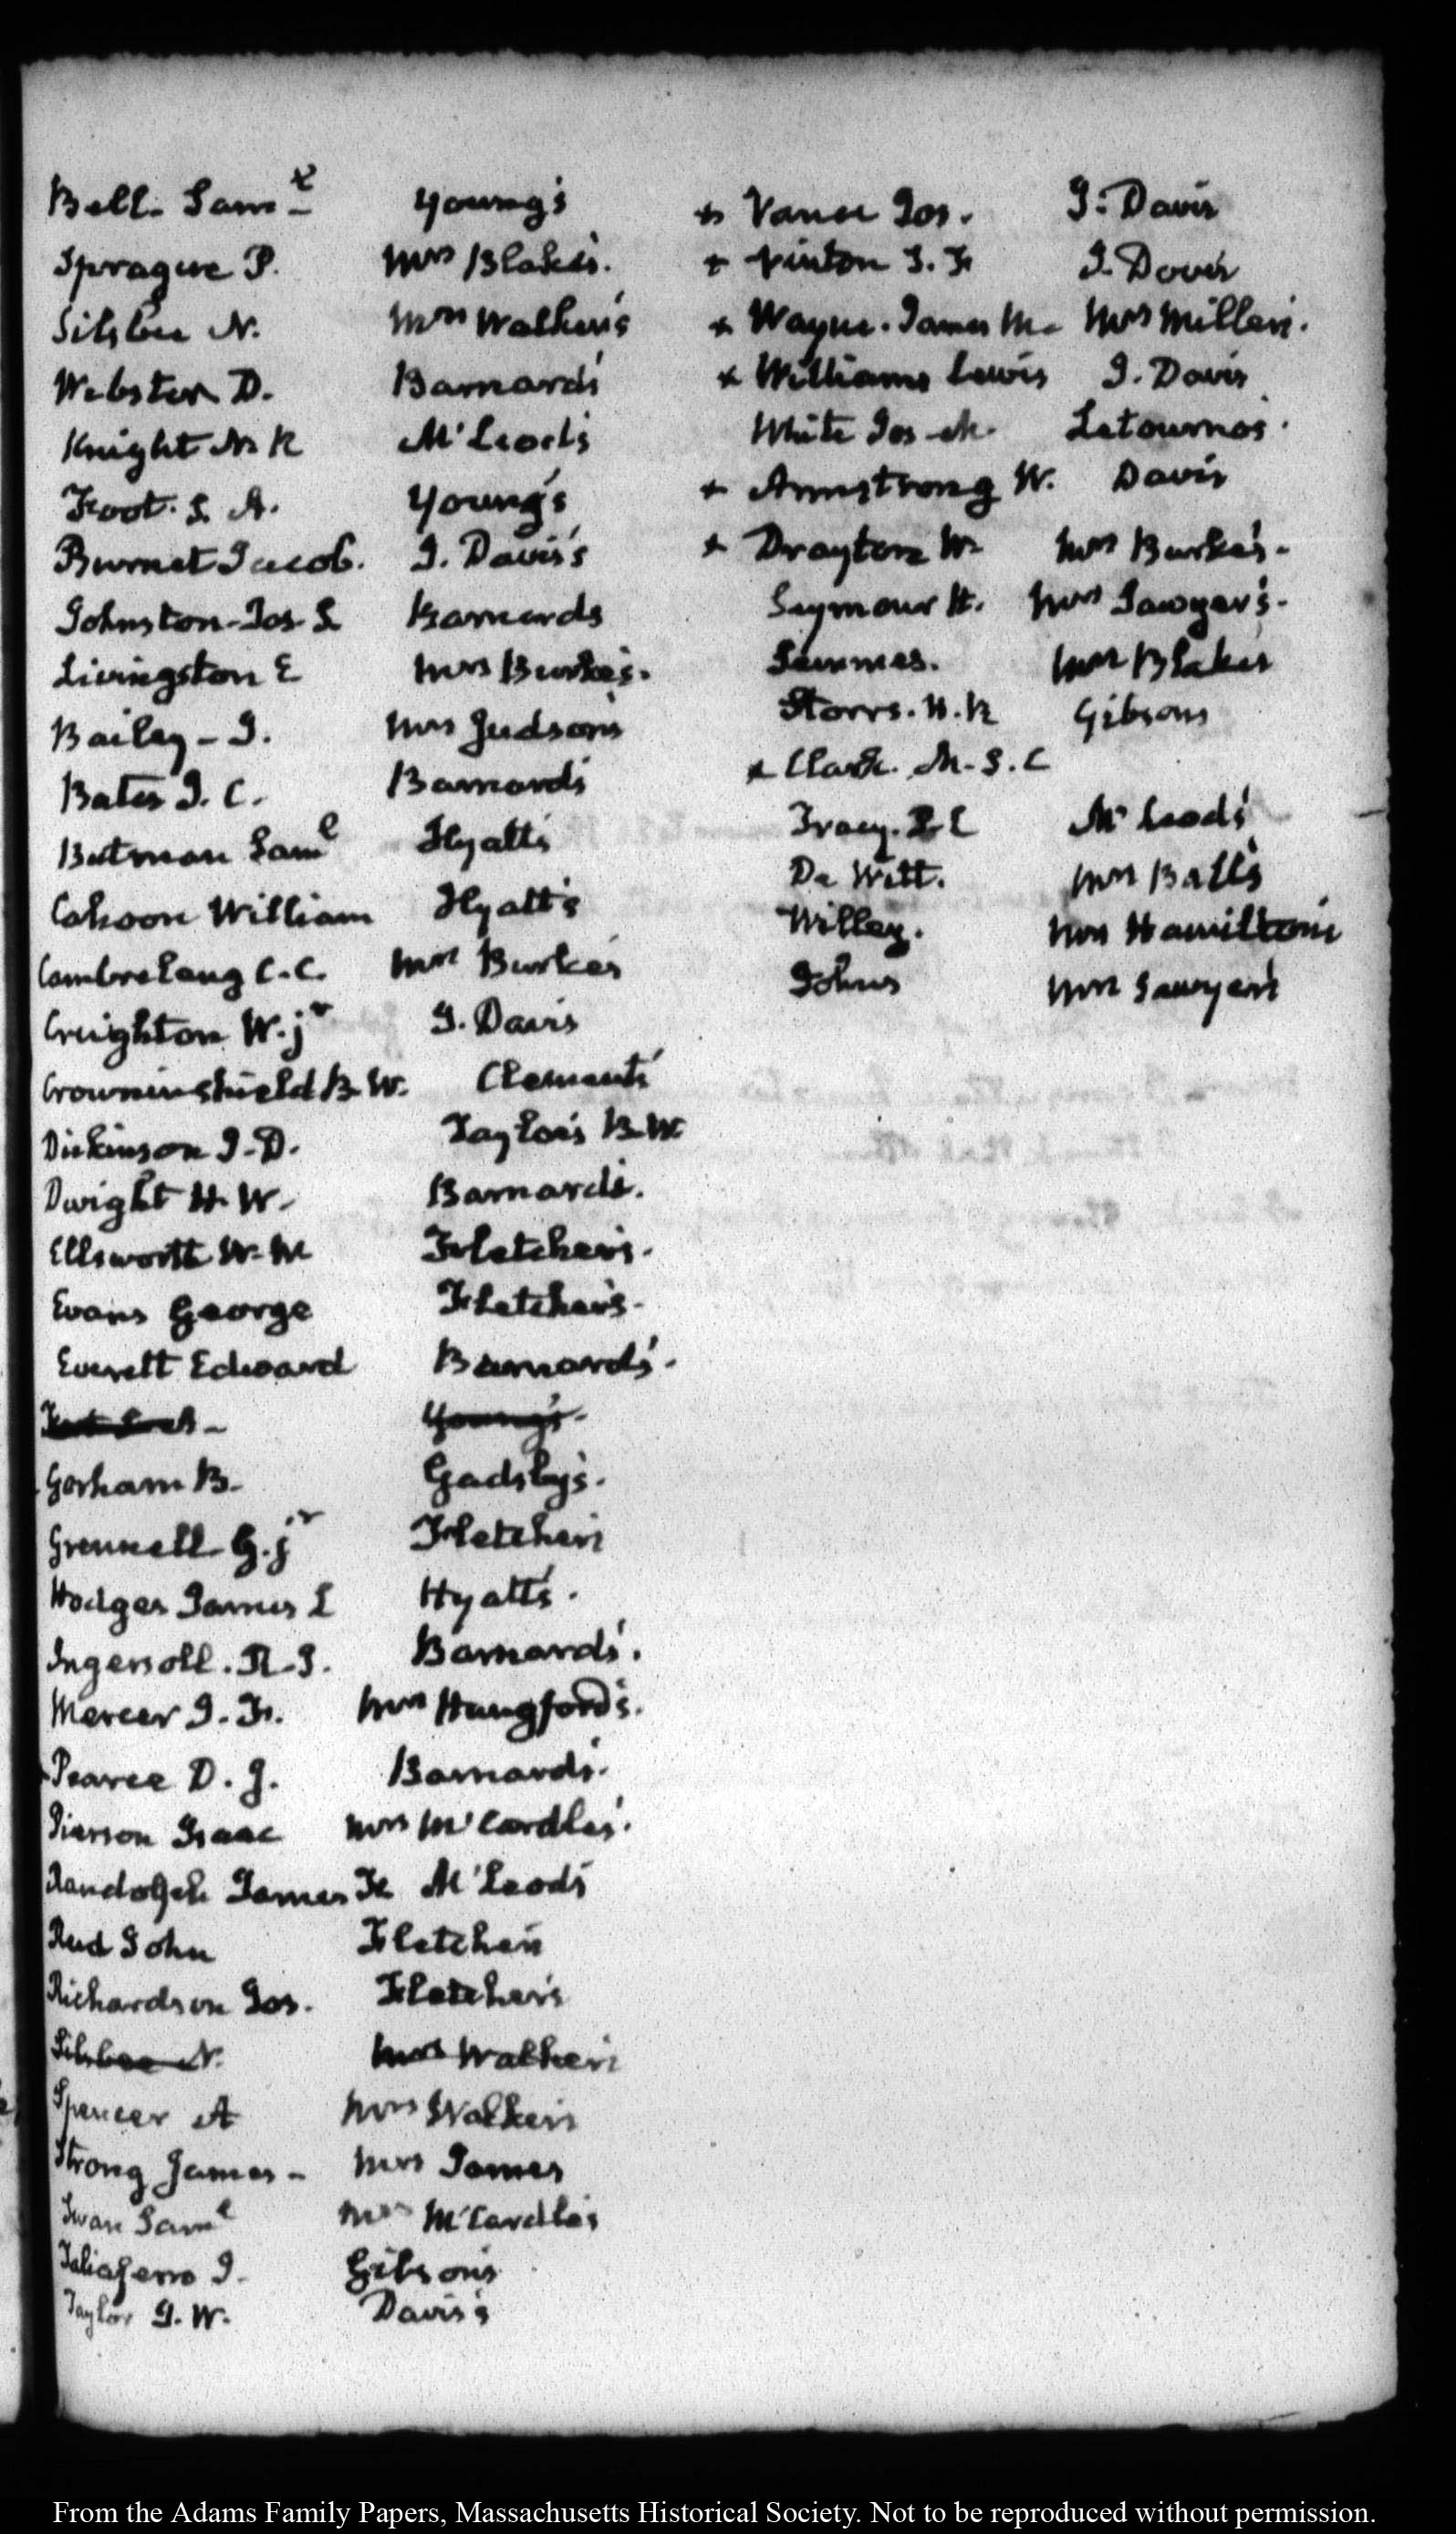 Bell. Saml Young's
Sprague P. Mrs Blake's.
Silsbee N. Mrs Walker's
Webster D. Barnard's
Knight N R M'Leod's
Foot. S. A. Young's
Burnet Jacob. J. Davis's
Johnston-Jos. S. Barnards
Livingston E Mrs Burke's.
Bailey - J. Mrs Judson's
Bates I. C. Barnard's
Butman Saml Hyatt's
Cahoon William Hyatt's
Cambreleng C.C. Mrs Burke's
Creighton W. jr J. Davis
Crowninshield B W. Clement's
Dickinson J-D. Taylor's B W
Dwight H. W. Barnard's.
Ellsworth W. W Fletcher's.
Evans George Fletcher's.
Everett Edward Barnard's.
Young's.
Gorham B. Gadsby's.
Grennell G. jr Fletcher's
Hodges James L Hyatt's.
Ingersoll. R. I. Barnard's.
Mercer J. F. Mrs Hungford's.
Pearce D. J. Barnard's.
Pierson Isaac Mrs M'Cardle's.
Randolph James F M'Leod's
Reed John Fletcher's
Richardson Jos. Fletcher's
Silsbee N. Mrs Walker's
Spencer A Mrs Walker's
Strong James - Mrs James
Swan Saml Mrs M'Cardle's
Taliaferro J. Gibson's
Taylor J. W. Davis's
+ Vance Jos. J. Davis
+ Vinton S. F. J. Davis
+ Wayne. James M. Mrs Miller's.
+ Williams Lewis J. Davis
White Jos. M. Letourno's.
+ Armstrong W. Davis
+ Drayton W. Mrs Burke's.
Seymour H. Mrs Sawyer's.
Semmes. Mrs Blake's
Storrs. H. R Gibsons
+ Clark. M. S. C
Tracy. P. C M'Leod's
De Witt. Mrs Ball's
Willey. Mrs Hamilton's
Johns Mrs Sawyer's
From the Adams Family Papers, Massachusetts Historical Society. Not to be reproduced without permission.